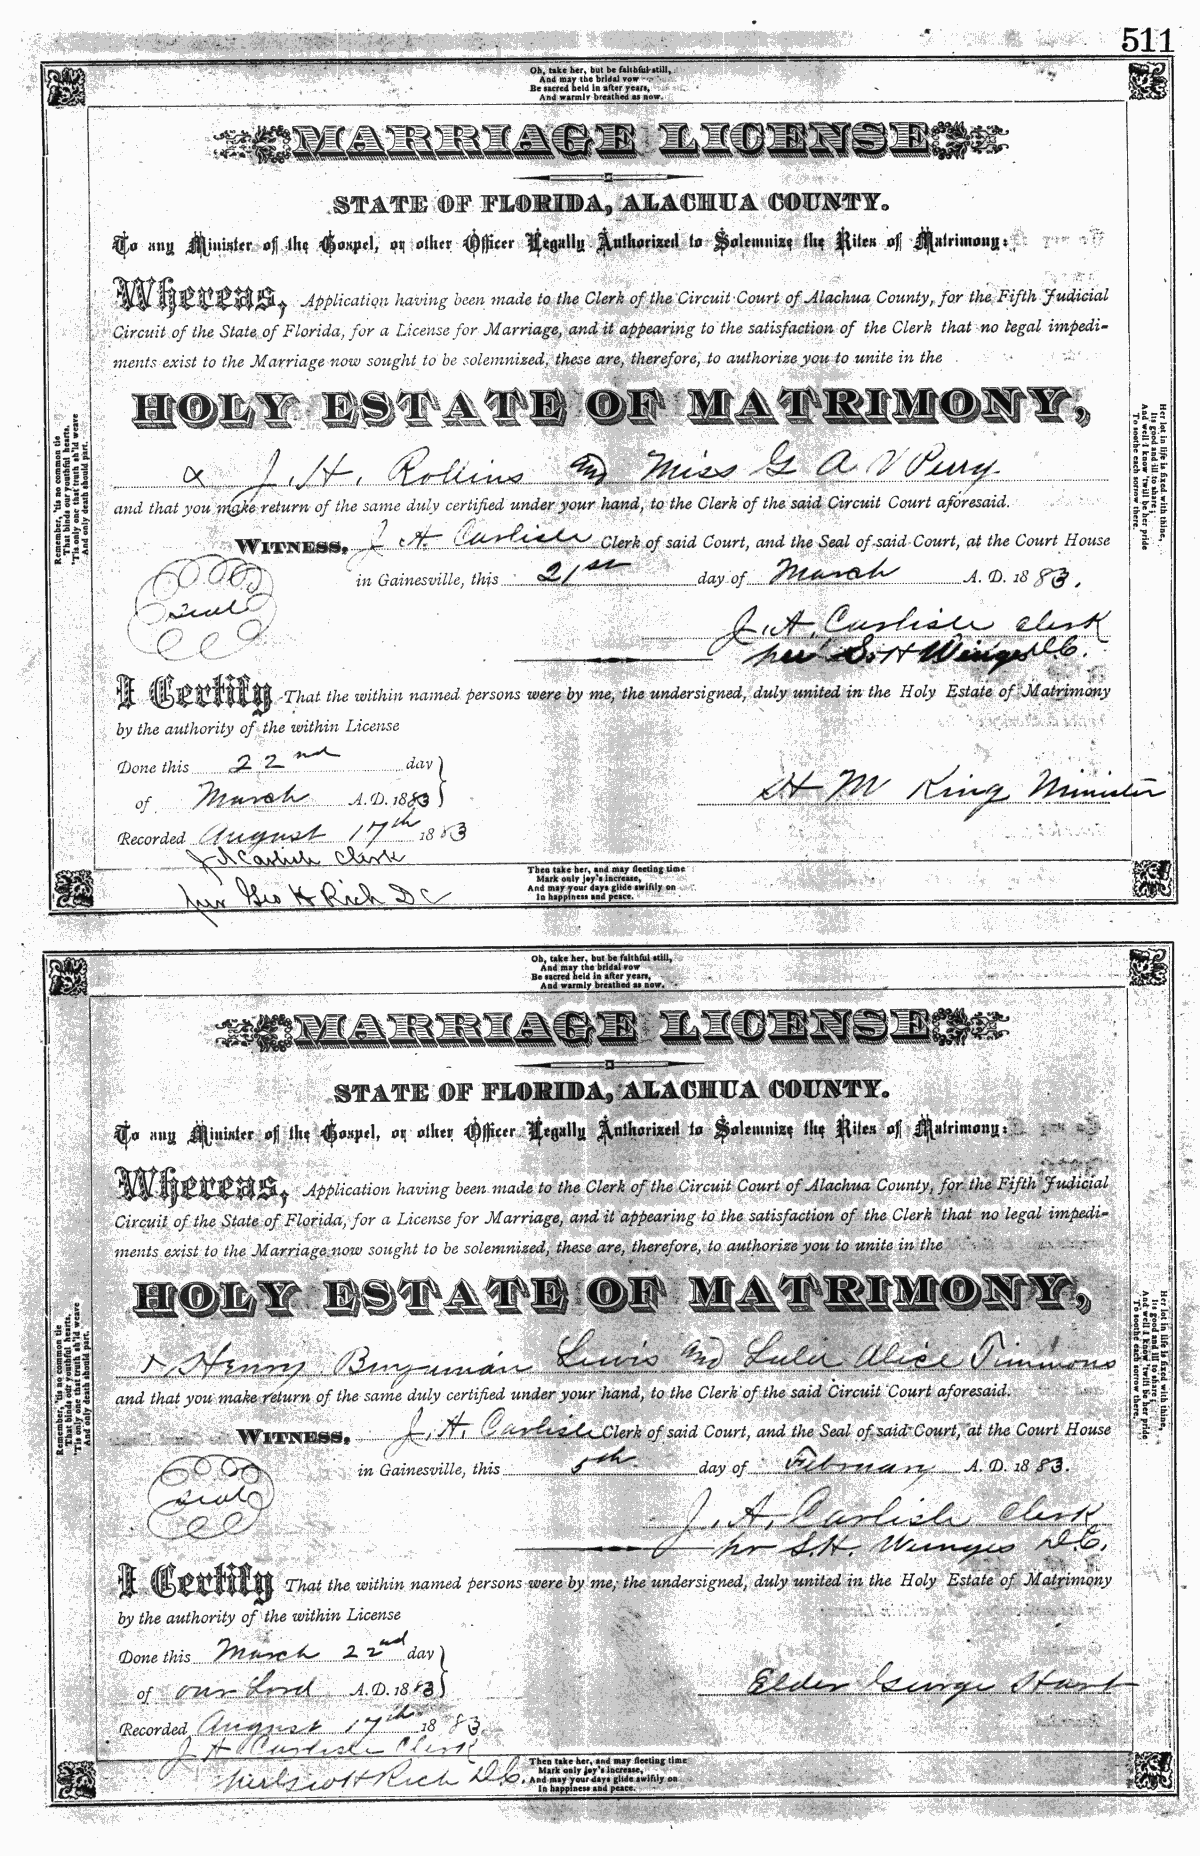 511
Oh, take her, but be faithful still,
And may the bridal vow
Be sacred held in after years,
And warmly breathed as now.
MARRIAGE LICENSE
STATE OF FLORIDA, ALACHUA COUNTY.
To any Minister of the Gospel, or other Officer Legally Authorized to Solemnize the Rites of Matrimony:
Whereas, Application having been made to the Clerk of the Circuit Court of Alachua County, for the Fifth Judicial
Circuit of the State of Florida, for a License for Marriage, and it appearing to the satisfaction of the Clerk that no legal impedi-
ments exist to the Marriage now sought to be solemnized, these are, therefore, to authorize you to unite in the
HOLY ESTATE OF MATRIMONY,
J. H. Rollins and Miss G A V Perry
and that you make return of the same duly certified under your hand, to the Clerk of the said Circuit Court aforesaid.
WITNESS, J. A. Carlisle Clerk of said Court, and the Seal of said Court, at the Court House
in Gainesville, this 21st day of March A. D. 1883.
Seal
J. A. Carlisle Clerk
per S. H Wienges D.C.
I Certify That the within named persons were by me, the undersigned, duly united in the Holy Estate of Matrimony
by the authority of the within License
Done this 22nd day
of March A. D. 1883
H M King Minister
Recorded August 17th 1883
J A Carlisle Clerk
per Geo H Rich DC
Then take her, and may fleeting time
Mark only joy's increase,
And may your days glide swiftly on
In happiness and peace.
Remember, 'tis no common tie
That binds our youthful hearts,
'Tis only one that truth sh'ld weave
And only death should part.
Her lot in life is fixed with thine,
Its good and ill to share;
And well I know 'twill be her pride
To soothe each sorrow there.
Oh, take her, but be faithful still,
And may the bridal vow
Be sacred held in after years,
And warmly breathed as now.
MARRIAGE LICENSE
STATE OF FLORIDA, ALACHUA COUNTY.
To any Minister of the Gospel, or other Officer Legally Authorized to Solemnize the Rites of Matrimony:
Whereas, Application having been made to the Clerk of the Circuit Court of Alachua County, for the Fifth Judicial
Circuit of the State of Florida, for a License for Marriage, and it appearing to the satisfaction of the Clerk that no legal impedi-
ments exist to the Marriage now sought to be solemnized, these are, therefore, to authorize you to unite in the
HOLY ESTATE OF MATRIMONY,
Henry Bengaman Lewis and Lula Alice Timmons
and that you make return of the same duly certified under your hand, to the Clerk of the said Circuit Court aforesaid.
WITNESS, J. A. Carlisle Clerk of said Court, and the Seal of said Court, at the Court House
in Gainesville, this 5th day of February A. D. 1883.
Seal
J. A. Carlisle Clerk
pr S. H. Wienges D.C.
I Certify That the within named persons were by me, the undersigned, duly united in the Holy Estate of Matrimony
by the authority of the within License
Done this March 22nd day
of our Lord A. D. 1883
Elder George Hart
Recorded August 17th 1883
J A Carlisle Clerk
per Geo H Rich D.C.
Then take her, and may fleeting time
Mark only joy's increase,
And may your days glide swiftly on
In happiness and peace.
Remember, 'tis no common tie
That binds our youthful hearts,
'Tis only one that truth sh'ld weave
And only death should part.
Her lot in life is fixed with thine,
Its good and ill to share;
And well I know 'twill be her pride
To soothe each sorrow there.